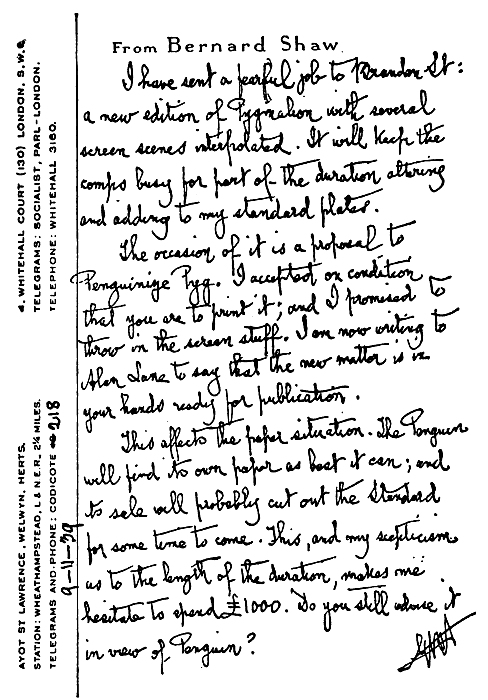 From Bernard Shaw
4, WHITEHALL COURT (130) LONDON, S.W.1.
TELEGRAMS: SOCIALIST, PARL-LONDON.
TELEPHONE: WHITEHALL 3160.
AYOT ST LAWRENCE, WELWYN, HERTS.
STATION: WHEATHAMPSTEAD, L & N.E.R., 2¼ MILES.
TELEGRAMS AND PHONE: CODICOTE 218
9-11-39
I have sent a fearful job to Brandon St:
a new edition of Pygmalion with several
screen scenes interpolated. It will keep the
comps busy for part of the duration altering
and adding to my standard plates.
The occasion of it is a proposal to
Penguinize Pyg. I accepted on condition
that you are to print it; and I promised to
throw in the screen stuff. I am now writing to
Alan Lane to say that the new matter is in
your hands ready for publication.
This affects the paper situation. The Penguin
will find its own paper as best it can; and
its sale will probably cut out the Standard
for some time to come. This, and my scepticism
as to the length of the duration, makes me
hesitate to spend £1000. Do you still advise it
in view of Penguin?
GBS